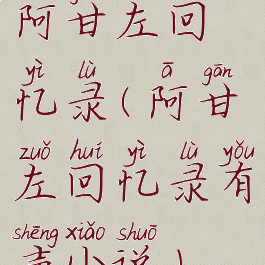 阿甘左回
yì lù ā gān
忆录(阿甘
zuǒ huí yì lù yǒu
左回忆录有
shēng xiǎo shuō
声小说)